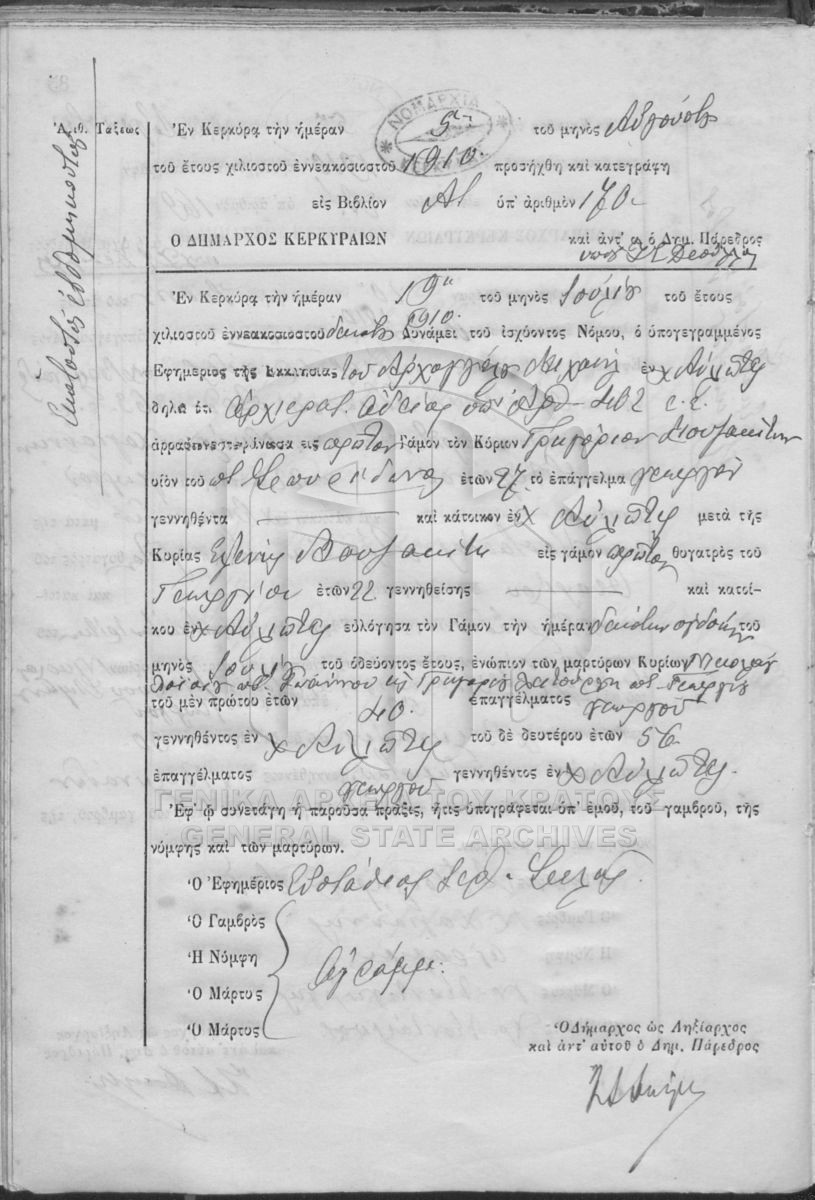 Ἀριθ. Τάξεως
Ἑκατοστὸς ἑβδομηκοστὸς
ΝΟΜΑΡΧΙΑ
Ἐν Κερκύρᾳ τὴν ἡμέραν 5ην τοῦ μηνὸς Αὐγούστου
τοῦ ἔτους χιλιοστοῦ ἐννεακοσιοστοῦ 1910. προσήχθη καὶ κατεγράφη
εἰς Βιβλίον Α1 ὑπ' ἀριθμὸν 170
Ο ΔΗΜΑΡΧΟΣ ΚΕΡΚΥΡΑΙΩΝ καὶ ἀντ' α. ὁ Δημ. Πάρεδρος
Ἐν Κερκύρᾳ τὴν ἡμέραν 19η τοῦ μηνὸς Ἰουλίου τοῦ ἔτους
1910.
χιλιοστοῦ ἐννεακοσιοστοῦ δεκάτου Δυνάμει τοῦ ἰσχύοντος Νόμου, ὁ ὑπογεγραμμένος
Ἐφημέριος τῆς Ἐκκλησίας τοῦ Ἀρχαγγέλου Μιχαὴλ ἐν χ Αὐλιώτες
δηλῶ ὅτι ἀρχιερατ. ἀδείας ὑπ' ἀριθ. 402 ε.ἔ.
ἀρραβωνεστεφάνωσα εἰς πρῶτον Γάμον τὸν Κύριον Γρηγόριον Μουζακίτην
υἱὸν τοῦ Σπυρίδωνος ἐτῶν 27 τὸ ἐπάγγελμα γεωργὸν
γεννηθέντα καὶ κάτοικον ἐν χ Αὐλιώτες μετὰ τῆς
Κυρίας Ἑλένης Μουζακίτη εἰς γάμον πρῶτον θυγατρὸς τοῦ
Γεωργίου ἐτῶν 22 γεννηθείσης καὶ κατοί-
κου ἐν χ Αὐλιώτες εὐλόγησα τὸν Γάμον τὴν ἡμέραν δεκάτην ὀγδόην τοῦ
μηνὸς Ἰουλίου τοῦ ὁδεύοντος ἔτους, ἐνώπιον τῶν μαρτύρων Κυρίων Νικολάου
Ἰωάννου κ Γρηγορίου Γεωργίου
τοῦ μὲν πρώτου ἐτῶν 40. ἐπαγγέλματος γεωργοῦ
γεννηθέντος ἐν χ Αὐλιώτες τοῦ δὲ δευτέρου ἐτῶν 56
ἐπαγγέλματος γεωργοῦ γεννηθέντος ἐν χ Αὐλιώτες.
ΓΕΝΙΚΑ ΑΡΧΕΙΑ ΤΟΥ ΚΡΑΤΟΥΣ
Ἐφ' ᾧ συνετάγη ἡ παροῦσα πρᾶξις, ἥτις ὑπογράφεται ὑπ' ἐμοῦ, τοῦ γαμβροῦ, τῆς
GENERAL STATE ARCHIVES
νύμφης καὶ τῶν μαρτύρων.
Ὁ Ἐφημέριος Εὐστάθιος
Ὁ Γαμβρὸς
Ἡ Νύμφη
ἀγράμματοι
Ὁ Μάρτυς
Ὁ Μάρτυς
Ὁ Δήμαρχος ὡς Ληξίαρχος
καὶ ἀντ' αὐτοῦ ὁ Δημ. Πάρεδρος